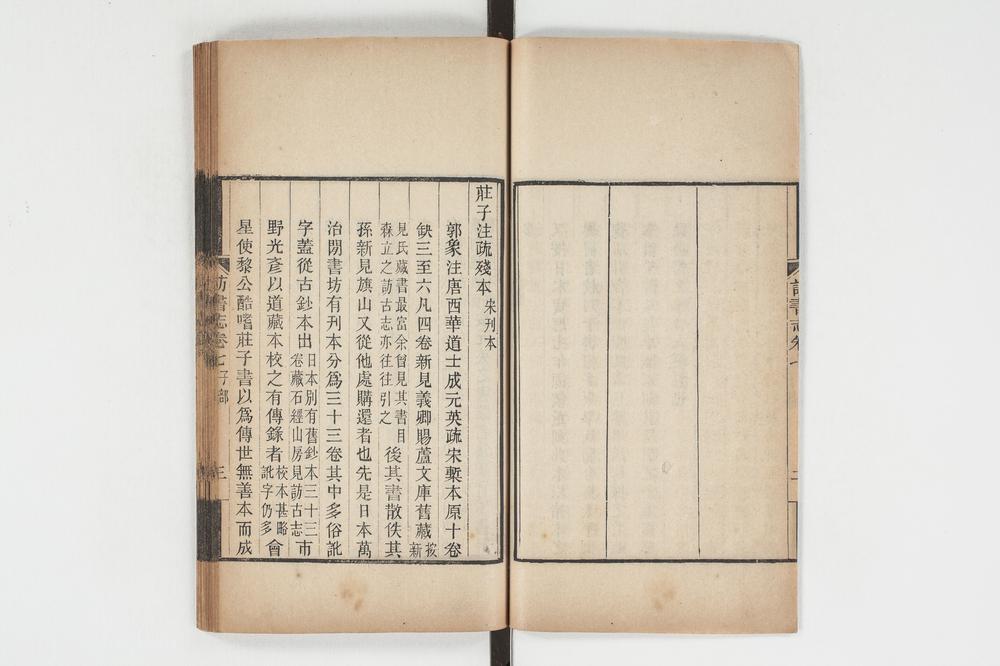 莊子注疏殘本宋刊本
郭象注唐西華道士成元英疏宋槧本原十卷
缺三至六凡四卷新見義卿賜蘆文庫舊藏按新
見氏藏書最富余曾見其書目森立之訪古志亦往往引之後其書散佚其
孫新見旗山又從他處購還者也先是日本萬
治閒書坊有刊本分爲三十三卷其中多俗訛
字蓋從古鈔本出日本別有舊鈔本三十三卷藏石經山房見訪古志市
野光彥以道藏本校之有傳錄者校本甚略訛字仍多會
星使黎公酷嗜莊子書以爲傳世無善本而成
訪書志卷七子部
三